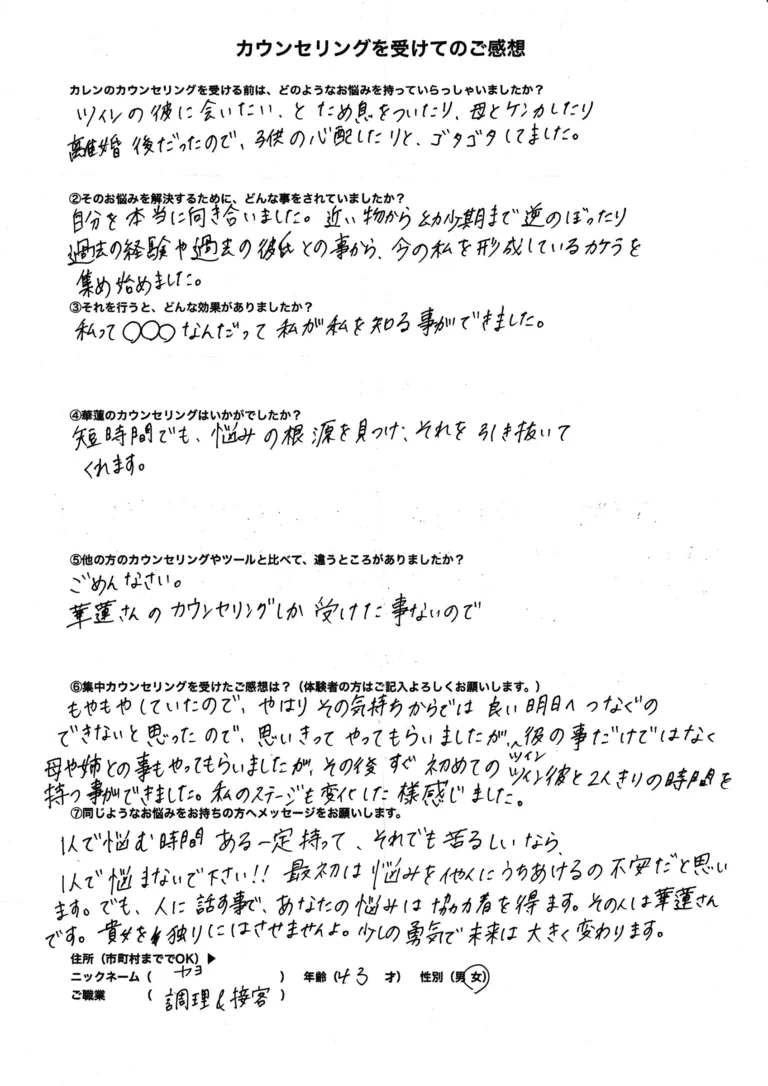 カウンセリングを受けてのご感想
カレンのカウンセリングを受ける前は、どのようなお悩みを持っていらっしゃいましたか?
ツインの彼に会いたい、とため息をついたり、母とケンカしたり
離婚後だったので、子供の心配したりと、ゴタゴタしてました。
②そのお悩みを解決するために、どんな事をされていましたか?
自分を本当に向き合いました。近い物から幼少期まで逆のぼったり
過去の経験や過去の彼氏との事から、今の私を形成しているカケラを
集め始めました。
③それを行うと、どんな効果がありましたか?
私って〇〇〇なんだって私が私を知る事ができました。
④華蓮のカウンセリングはいかがでしたか?
短時間でも、悩みの根源を見つけ、それを引き抜いて
くれます。
⑤他の方のカウンセリングやツールと比べて、違うところがありましたか?
ごめんなさい。
華蓮さんのカウンセリングしか受けた事ないので
⑥集中カウンセリングを受けたご感想は?(体験者の方はご記入よろしくお願いします。)
もやもやしていたので、やはりその気持ちからでは良い明日へつなぐの
できないと思ったので、思いきってやってもらいましたが、彼の事だけではなく
ツイン
母や姉との事もやってもらいましたが、その後すぐ初めてのツイン彼と2人きりの時間を
持つ事ができました。私のステージも変化した様感じました。
⑦同じようなお悩みをお持ちの方へメッセージをお願いします。
1人で悩む時間ある一定持って、それでも苦るしいなら、
1人で悩まないで下さい!! 最初は悩みを他人にうちあけるの不安だと思い
ます。でも、人に話す事で、あなたの悩みは協力者を得ます。その人は華蓮さん
です。貴女を独りにはさせませんよ。少しの勇気で未来は大きく変わります。
住所(市町村まででOK)▶
ニックネーム( ヤヨ ) 年齢(43 才) 性別(男 女)
ご職業 ( 調理&接客 )